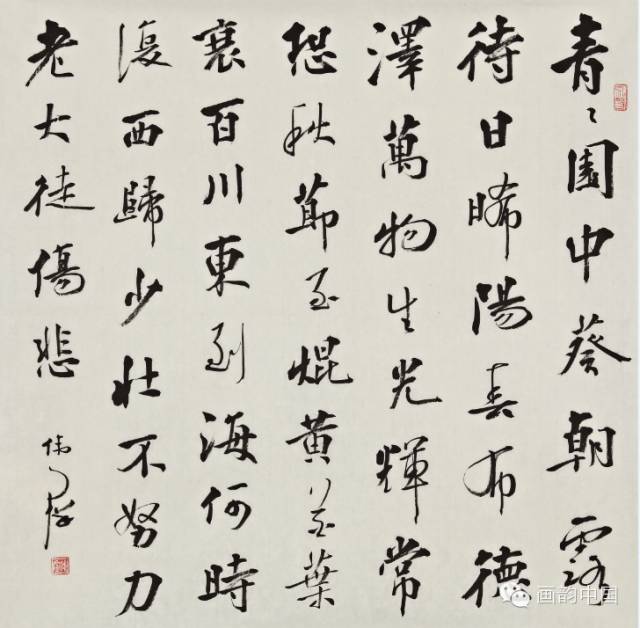 青〻園中葵朝露
待日晞陽春布德
澤萬物生光輝常
恐秋節至焜黄華葉
衰百川東到海何時
復西歸少壯不努力
老大徒傷悲
画韵中国